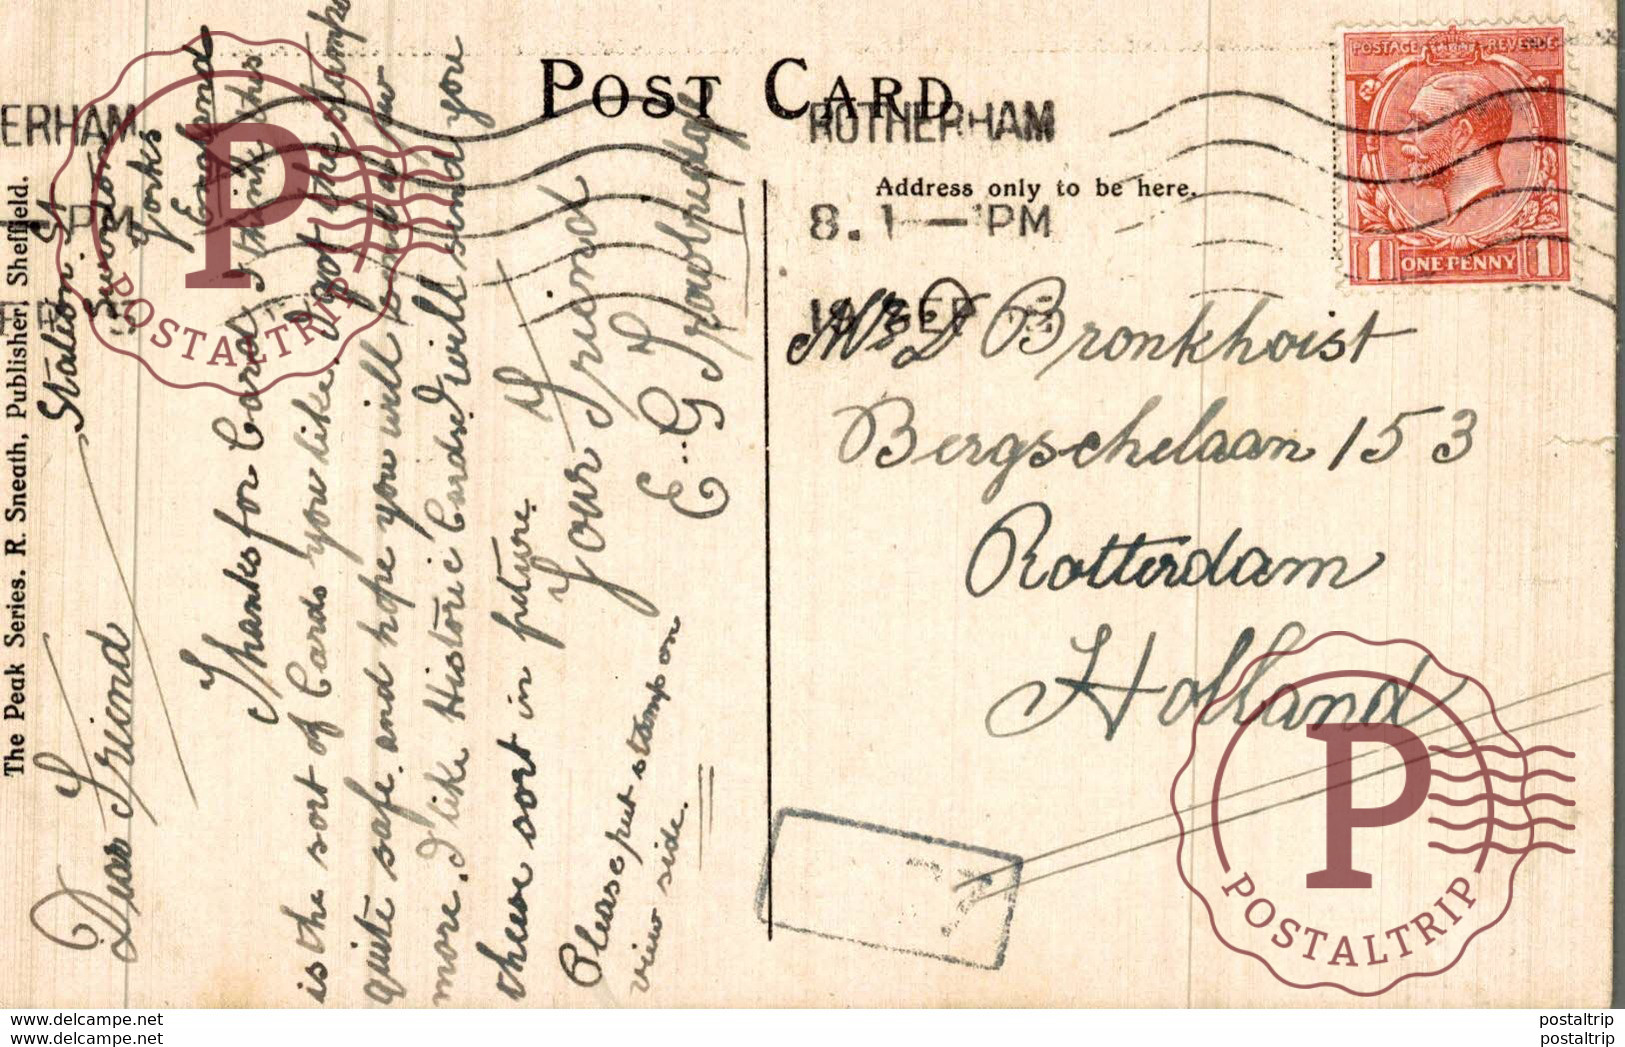 POST CARD
Address only to be here.
ROTHERHAM
8. 1 — PM
ERHAM
PM
POSTAGE REVENUE
1 ONE PENNY 1
D Bronkhoist
Bergschelaan 153
Rotterdam
Holland
The Peak Series. R. Sneath, Publisher, Sheffield.
Station St
Swinton
Yorks
England
Dear Friend
Thanks for Card, I think this
is the sort of Cards you like. I got the stamps
quite safe. and hope you will send a few
more. I like Historic Cards. I will send you
these sort in future.
Your Friend
E. G.
Please put stamp on
view side.
P
POSTALTRIP
P
POSTALTRIP
www.delcampe.net
www.delcampe.net
postaltrip
postaltrip